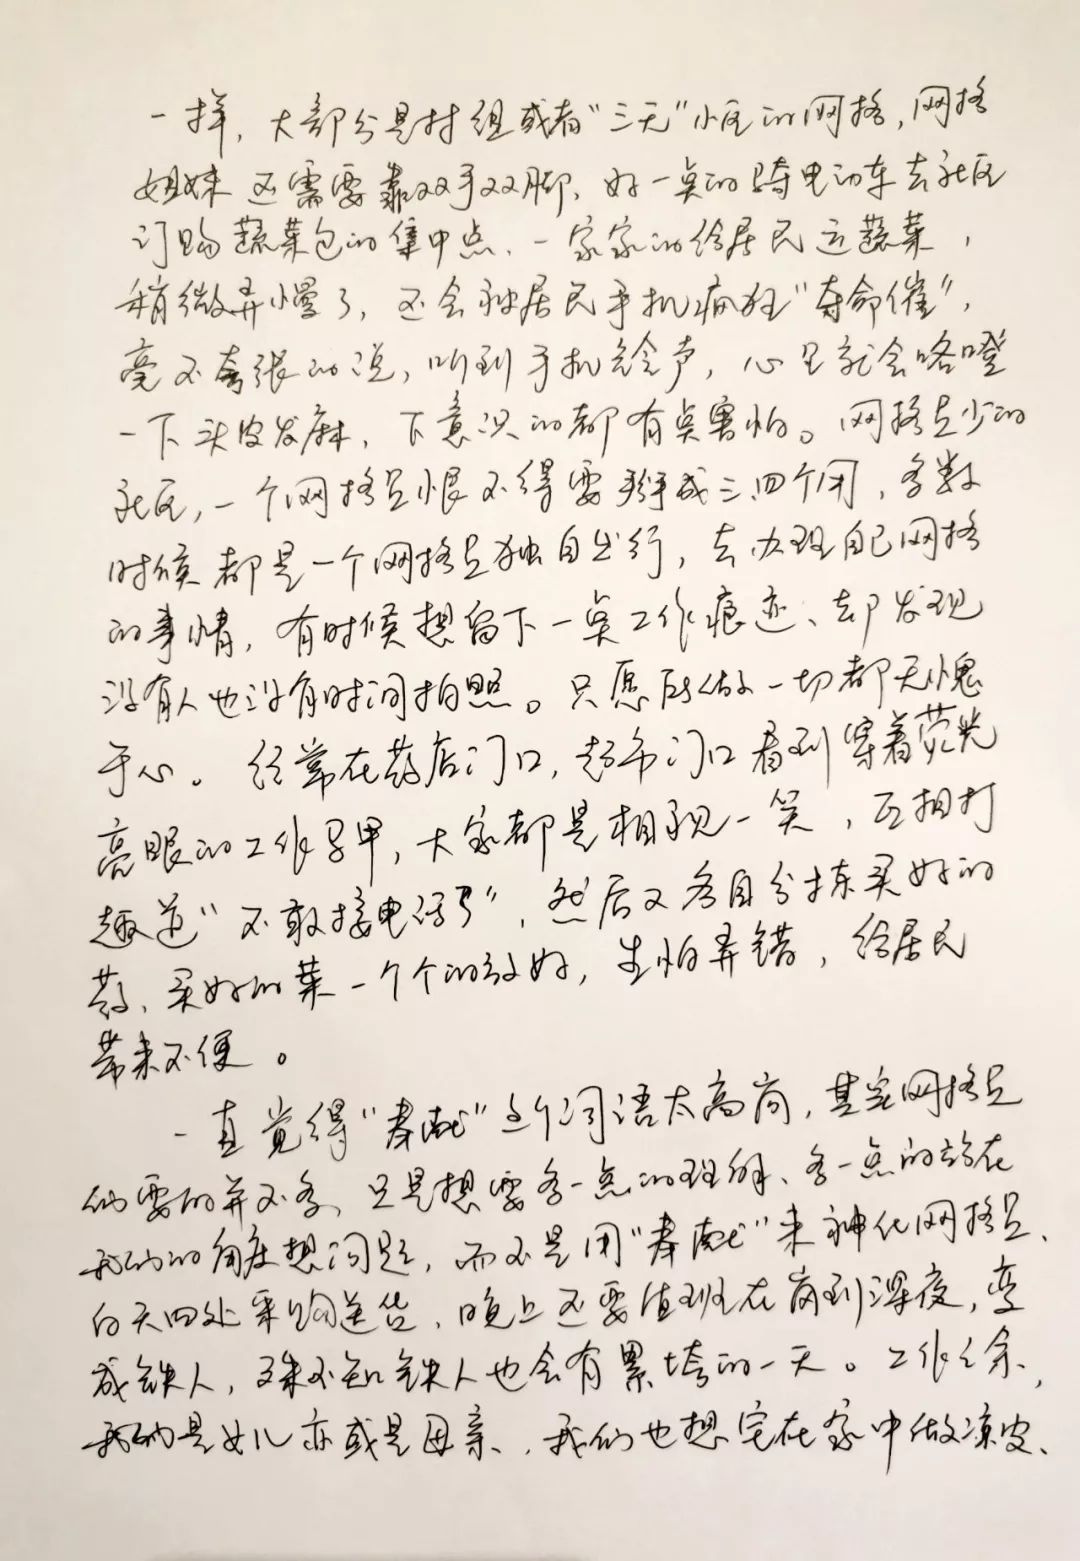 一样，大部分是村组或者“三无”小区的网格，网格
姐妹还需要靠双手双脚、好一点的骑电动车去社区
订购蔬菜包的集中点、一家家的给居民运蔬菜，
稍微弄慢了，还会被居民手机疯狂“夺命催”，
毫不夸张的说，听到手机铃声，心里就会咯噔
一下头皮发麻，下意识的都有点害怕。网格员少的
社区，一个网格员恨不得要掰成三四个用，多数
时候都是一个网格员独自出行，去办理自己网格
的事情，有时候想留下一点工作痕迹、却发现
没有人也没有时间拍照。只愿所做一切都无愧
于心。经常在药店门口，超市门口看到穿着荧光
亮眼的工作马甲，大家都是相视一笑，互相打
趣道“不敢接电话了”，然后又各自分拣买好的
药、买好的菜一个个的放好，生怕弄错，给居民
带来不便。
一直觉得“奉献”这个词语太高尚，其实网格员
们要的并不多、只是想要多一点的理解、多一点的站在
我们的角度想问题，而不是用“奉献”来神化网格员、
白天四处采购送货，晚上还要值班在岗到深夜，变
成铁人，殊不知铁人也会有累垮的一天。工作之余、
我们是女儿亦或是母亲、我们也想宅在家中做凉皮、